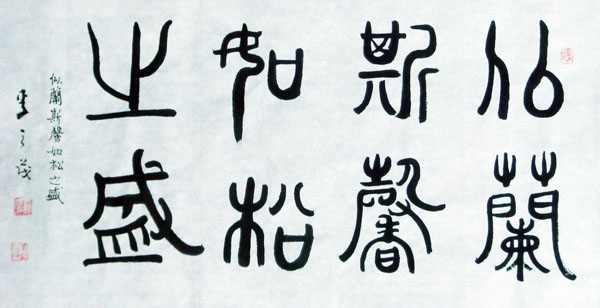 似蘭
斯馨
如松
之盛
似蘭斯馨如松之盛